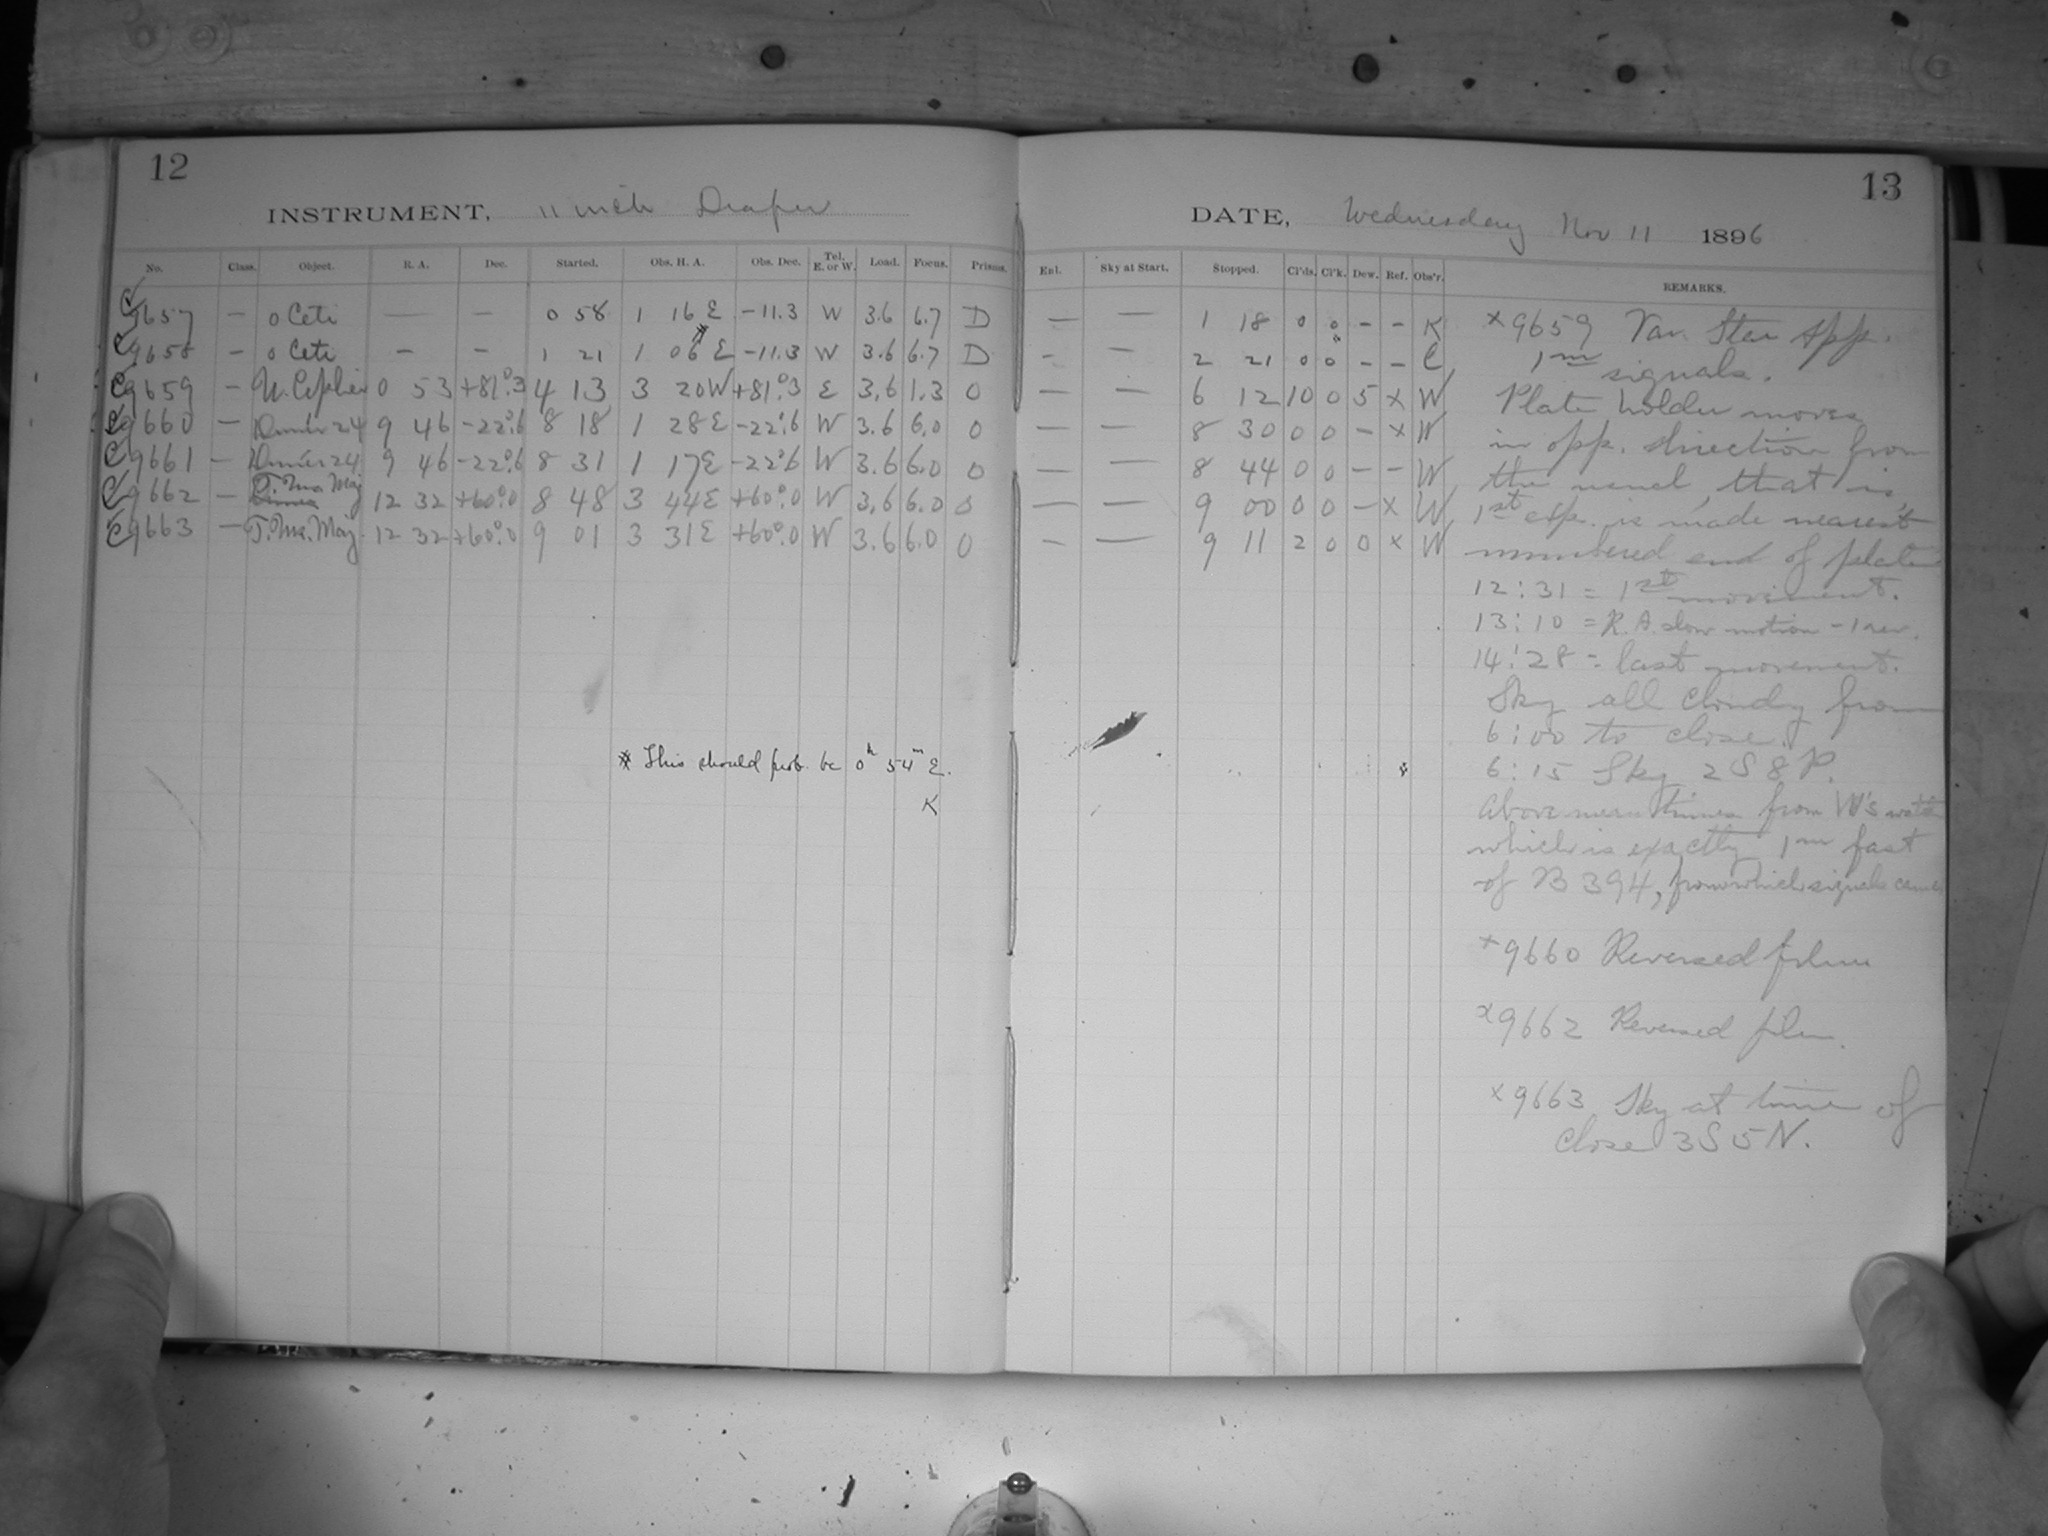 12
INSTRUMENT, 11 inch Draper
No. Class. Object. R. A. Dec. Started. Obs. H. A. Obs. Dec. Tel. E. or W. Load. Focus. Prisms.
C 9657 — o Ceti — — 0 58 1 16 E -11.3 W 3.6 6.7 D
C 9658 — o Ceti — — 1 21 1 06* E -11.3 W 3.6 6.7 D
C 9659 — U. Cephei 0 53 +81°.3 4 13 3 20W +81°.3 E 3.6 1.3 0
C 9660 — Dunér 24 9 46 -22°.6 8 18 1 28E -22°.6 W 3.6 6.0 0
C 9661 — Dunér 24 9 46 -22°.6 8 31 1 17E -22°.6 W 3.6 6.0 0
C 9662 — T. Urs. Maj 12 32 +60°.0 8 48 3 44E +60°.0 W 3.6 6.0 0
C 9663 — T. Urs. Maj. 12 32 +60°.0 9 01 3 31E +60°.0 W 3.6 6.0 0
* This should prob. be 0h 54m E.
K
13
DATE, Wednesday Nov 11 1896
Enl. Sky at Start. Stopped. Cl'ds. Cl'k. Dew. Ref. Obs'r. REMARKS.
— — 1 18 0 0 - - K
- — 2 21 0 0 - - C
— — 6 12 10 0 5 x W
— — 8 30 0 0 - x W
— — 8 44 0 0 - - W
— — 9 00 0 0 - x W
— — 9 11 2 0 0 x W
x 9659 Var. Star App.
1m signals.
Plate holder moves
in opp. direction from
the usual, that is,
1st exp. is made nearest
numbered end of plate
12:31 = 1st movement.
13:10 = R.A. slow motion - 1 rev.
14:28 = last movement.
Sky all cloudy from
6:00 to close.
6:15 Sky 2S 8P.
Above mean times from W's watch
which is exactly 1m fast
of B 394, from which signals came
x 9660 Reversed film
x 9662 Reversed film.
x 9663 Sky at time of
close 3S 5N.